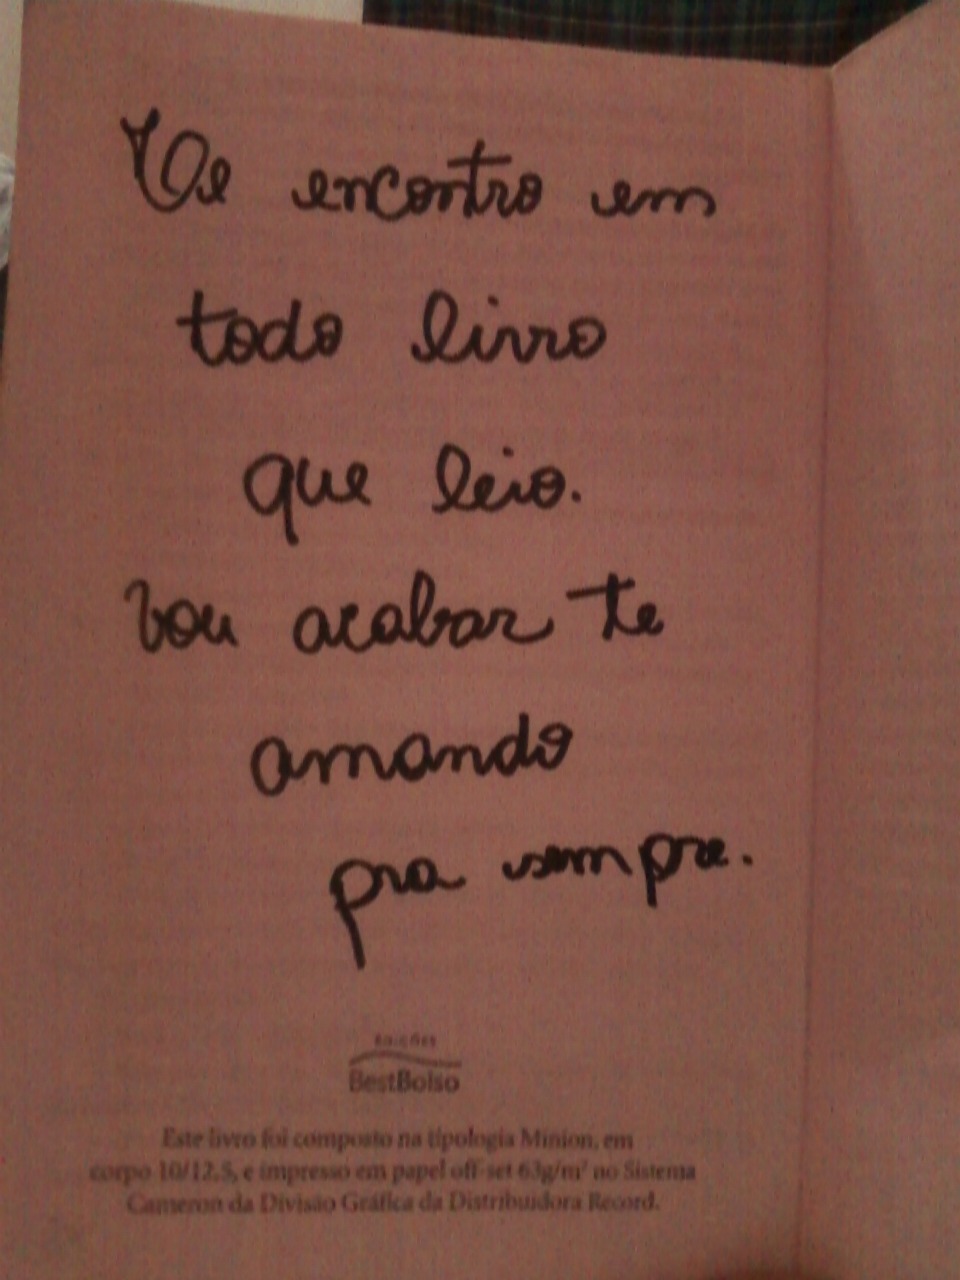 Te encontro em
todo livro
que leio.
Vou acabar te
amando
pra sempre.
EDIÇÕES
BestBolso
Este livro foi composto na tipologia Minion, em
corpo 10/12,5, e impresso em papel off-set 63g/m² no Sistema
Cameron da Divisão Gráfica da Distribuidora Record.